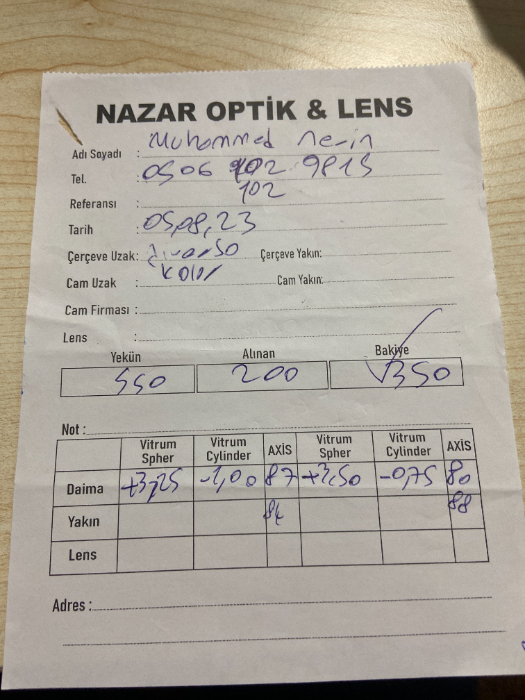 NAZAR OPTİK & LENS
Adı Soyadı : Muhammed Nerin
Tel. : 0506 102 9815
102
Referansı :
Tarih : 05,08,23
Çerçeve Uzak: Çerçeve Yakın:
Cam Uzak : Kolor Cam Yakın:
Cam Firması :
Lens :
Yekün Alınan Bakiye
550 200 350
Not :
Vitrum Spher Vitrum Cylinder AXİS Vitrum Spher Vitrum Cylinder AXİS
Daima +3,25 -1,00 87 +3,50 -0,75 80
Yakın 84 88
Lens
Adres :